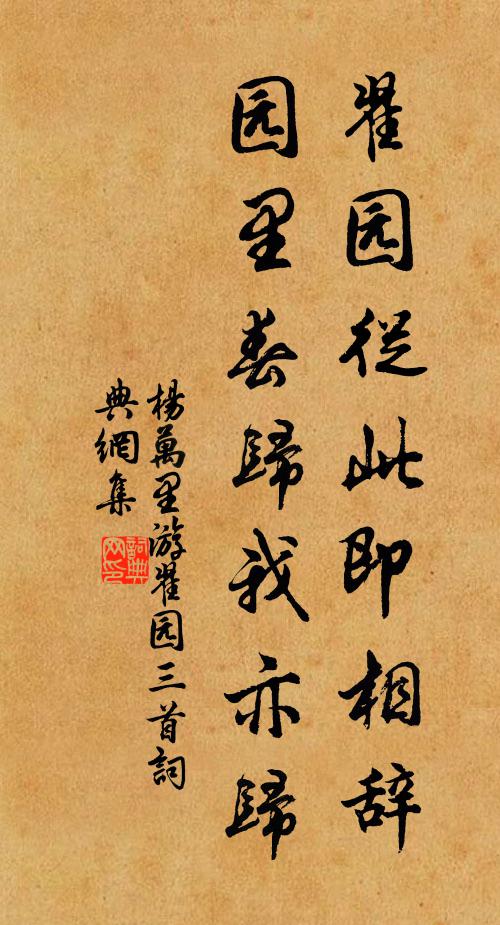 瞿园從此即相辞
园里春歸我亦歸
楊萬里游瞿园三首詞
典網集
詞典网印